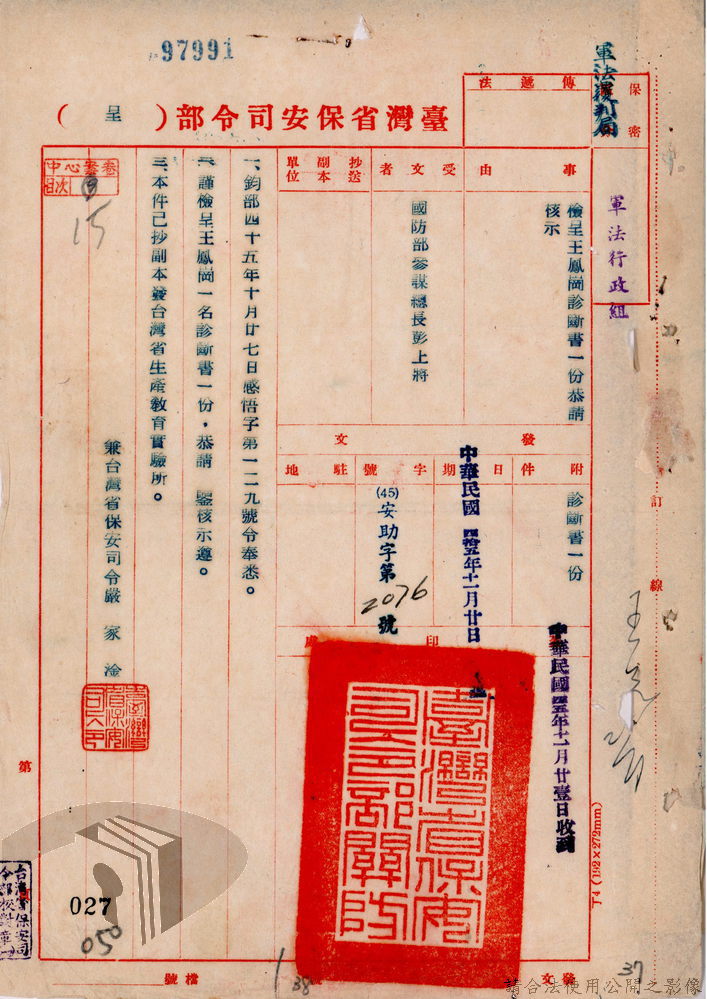 97991
軍法覆判局
保密
傳遞法
臺灣省保安司令部（呈）
軍法行政組
事由
檢呈王鳳崗診斷書一份恭請
核示
受文者
國防部參謀總長彭上將
抄送副本單位
發文
附件
診斷書一份
日期
中華民國四十五年十一月廿日
字號
(45)安助字第2076號
駐地
印
中華民國四十五年十一月廿壹日收到
臺灣省保安司令部關防
一、鈞部四十五年十月廿七日感悟字第一一二九號令奉悉。
二、謹檢呈王鳳崗一名診斷書一份，恭請 鑒核示遵。
三、本件已抄副本發台灣省生產教育實驗所。
兼台灣省保安司令嚴家淦
臺灣省保安司令
中心案卷
目次
15
訂線
丁4 (192×272mm)
第
027
050
檔號
發文
38
37
請合法使用公開之影像